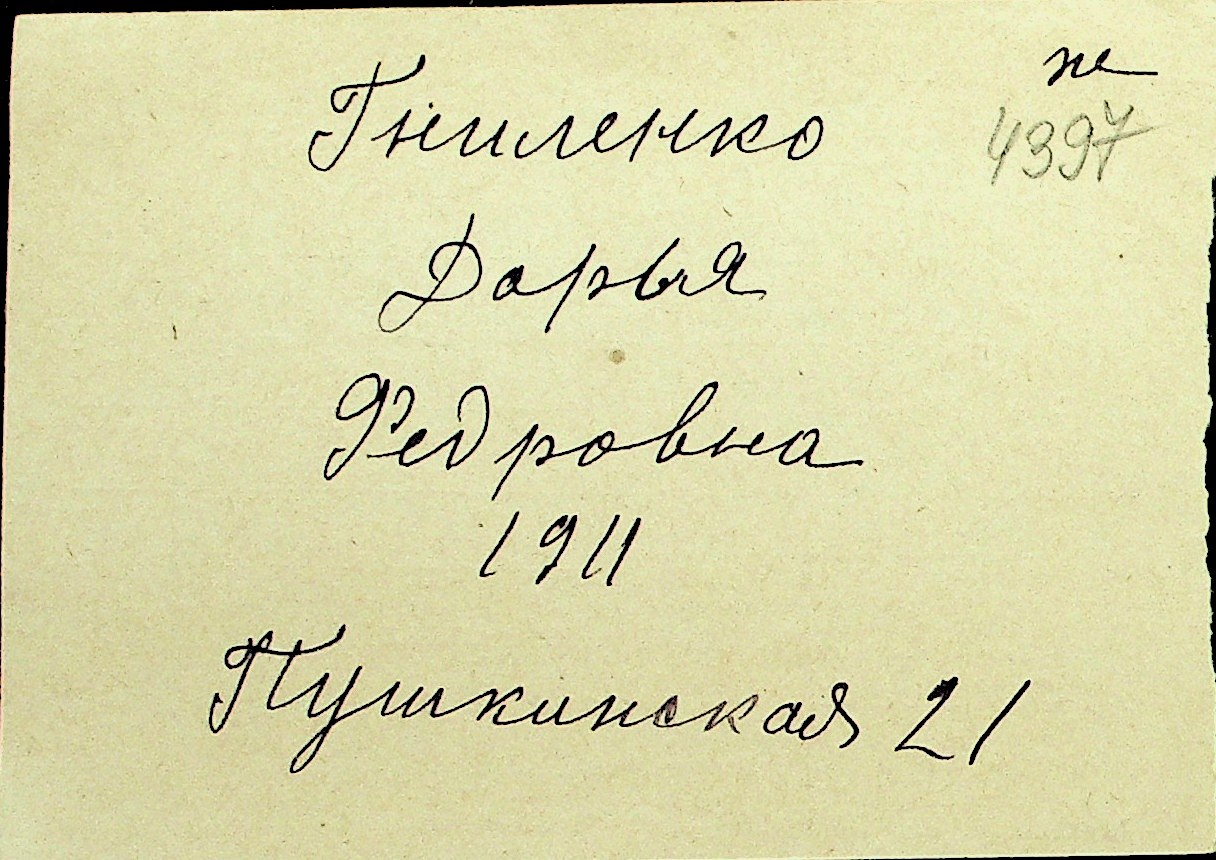 не
4397
Гниленко
Дарья
Федровна
1911
Пушкинская 21